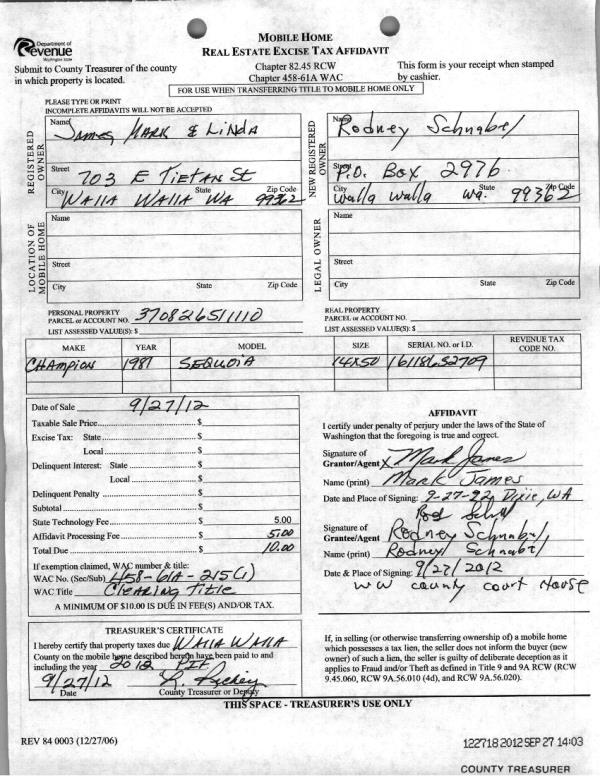 Department of
Revenue
Washington State
MOBILE HOME
REAL ESTATE EXCISE TAX AFFIDAVIT
Submit to County Treasurer of the county
in which property is located.
Chapter 82.45 RCW
Chapter 458-61A WAC
This form is your receipt when stamped
by cashier.
FOR USE WHEN TRANSFERRING TITLE TO MOBILE HOME ONLY
PLEASE TYPE OR PRINT
INCOMPLETE AFFIDAVITS WILL NOT BE ACCEPTED
REGISTERED OWNER
Name James Mark & Linda
Street 703 E Tietan St
City Walla Walla State WA Zip Code 99362
NEW REGISTERED OWNER
Name Rodney Schnabel
Street P.O. Box 2976
City Walla Walla State Wa. Zip Code 99362
LOCATION OF MOBILE HOME
Name
Street
City State Zip Code
LEGAL OWNER
Name
Street
City State Zip Code
PERSONAL PROPERTY
PARCEL or ACCOUNT NO. 370826511110
LIST ASSESSED VALUE(S): $
REAL PROPERTY
PARCEL or ACCOUNT NO.
LIST ASSESSED VALUE(S): $
MAKE YEAR MODEL SIZE SERIAL NO. or I.D. REVENUE TAX CODE NO.
Champion 1987 Sequoia 14x50 16118652709
Date of Sale 9/27/12
Taxable Sale Price $
Excise Tax: State $
Local $
Delinquent Interest: State $
Local $
Delinquent Penalty $
Subtotal $
State Technology Fee $ 5.00
Affidavit Processing Fee $ 5.00
Total Due $ 10.00
If exemption claimed, WAC number & title:
WAC No. (Sec/Sub) 458-61A-215(1)
WAC Title Clearing Title
A MINIMUM OF $10.00 IS DUE IN FEE(S) AND/OR TAX.
AFFIDAVIT
I certify under penalty of perjury under the laws of the State of
Washington that the foregoing is true and correct.
Signature of
Grantor/Agent X Mark James
Name (print) Mark James
Date and Place of Signing: 9-27-12 Dixie, WA
Signature of
Grantee/Agent Rodney Schnabel
Name (print) Rodney Schnabel
Date & Place of Signing: 9/27/2012
WW County Court House
TREASURER'S CERTIFICATE
I hereby certify that property taxes due Walla Walla
County on the mobile home described hereon have been paid to and
including the year 2012 PIF
9/27/12
Date County Treasurer or Deputy
If, in selling (or otherwise transferring ownership of) a mobile home
which possesses a tax lien, the seller does not inform the buyer (new
owner) of such a lien, the seller is guilty of deliberate deception as it
applies to Fraud and/or Theft as defined in Title 9 and 9A RCW (RCW
9.45.060, RCW 9A.56.010 (4d), and RCW 9A.56.020).
THIS SPACE - TREASURER'S USE ONLY
REV 84 0003 (12/27/06)
122718 2012 SEP 27 14:03
COUNTY TREASURER